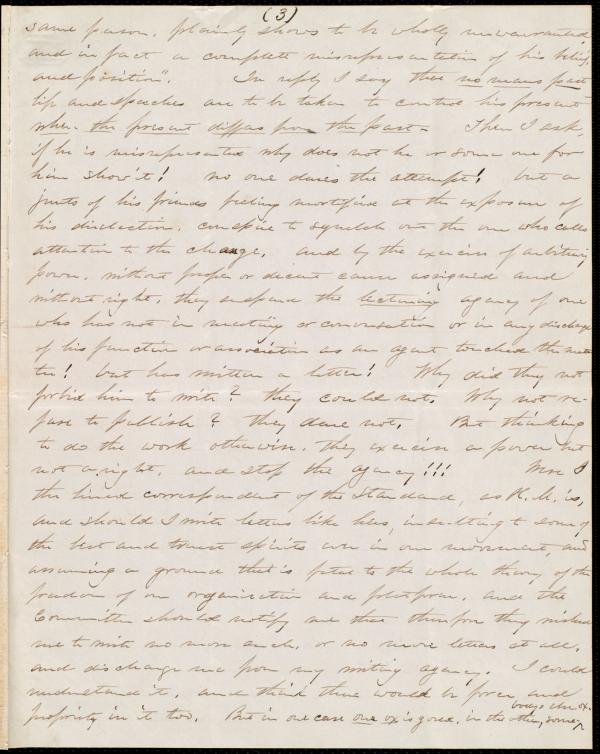 (3)
same person, plainly shows to be wholly unwarranted
and in fact a complete misrepresentation of his belief
and position". In reply I say that no man's past
life and speeches are to be taken to control his present
when the present differs from the past - Then I ask,
if he is misrepresented why does not he or some one for
him show it! no one dares the attempt! but a
junto of his friends feeling mortified at the exposure of
his dereliction, conspire to squelch out the one who calls
attention to the change, and by the exercise of arbitrary
power, without proper or decent cause assigned and
without right, they suspend the lecturing agency of one
who has not in meeting or conversation or in any discharge
of his function or association as an agent touched the mat
ter! but has written a letter! Why did they not
forbid him to write? they could not. Why not re-
fuse to publish? they dare not. But thinking
to do the work otherwise, they exercise a power but
not a right, and stop the agency!!! Were I
the hired correspondent of the Standard, as K. M. is,
and should I write letters like his, insulting to some of
the best and truest spirits ever in our movement, and
assuming a ground that is fatal to the whole theory of the
freedom of our organization and platform, and the
Committee should notify me that therefore they wished
me to write no more such, or no more letters at all,
and discharge me from my writing agency. I could
understand it, and think there would be force and
propriety in it too. But in one case one ox is gored, in the other, some
body's else ox.